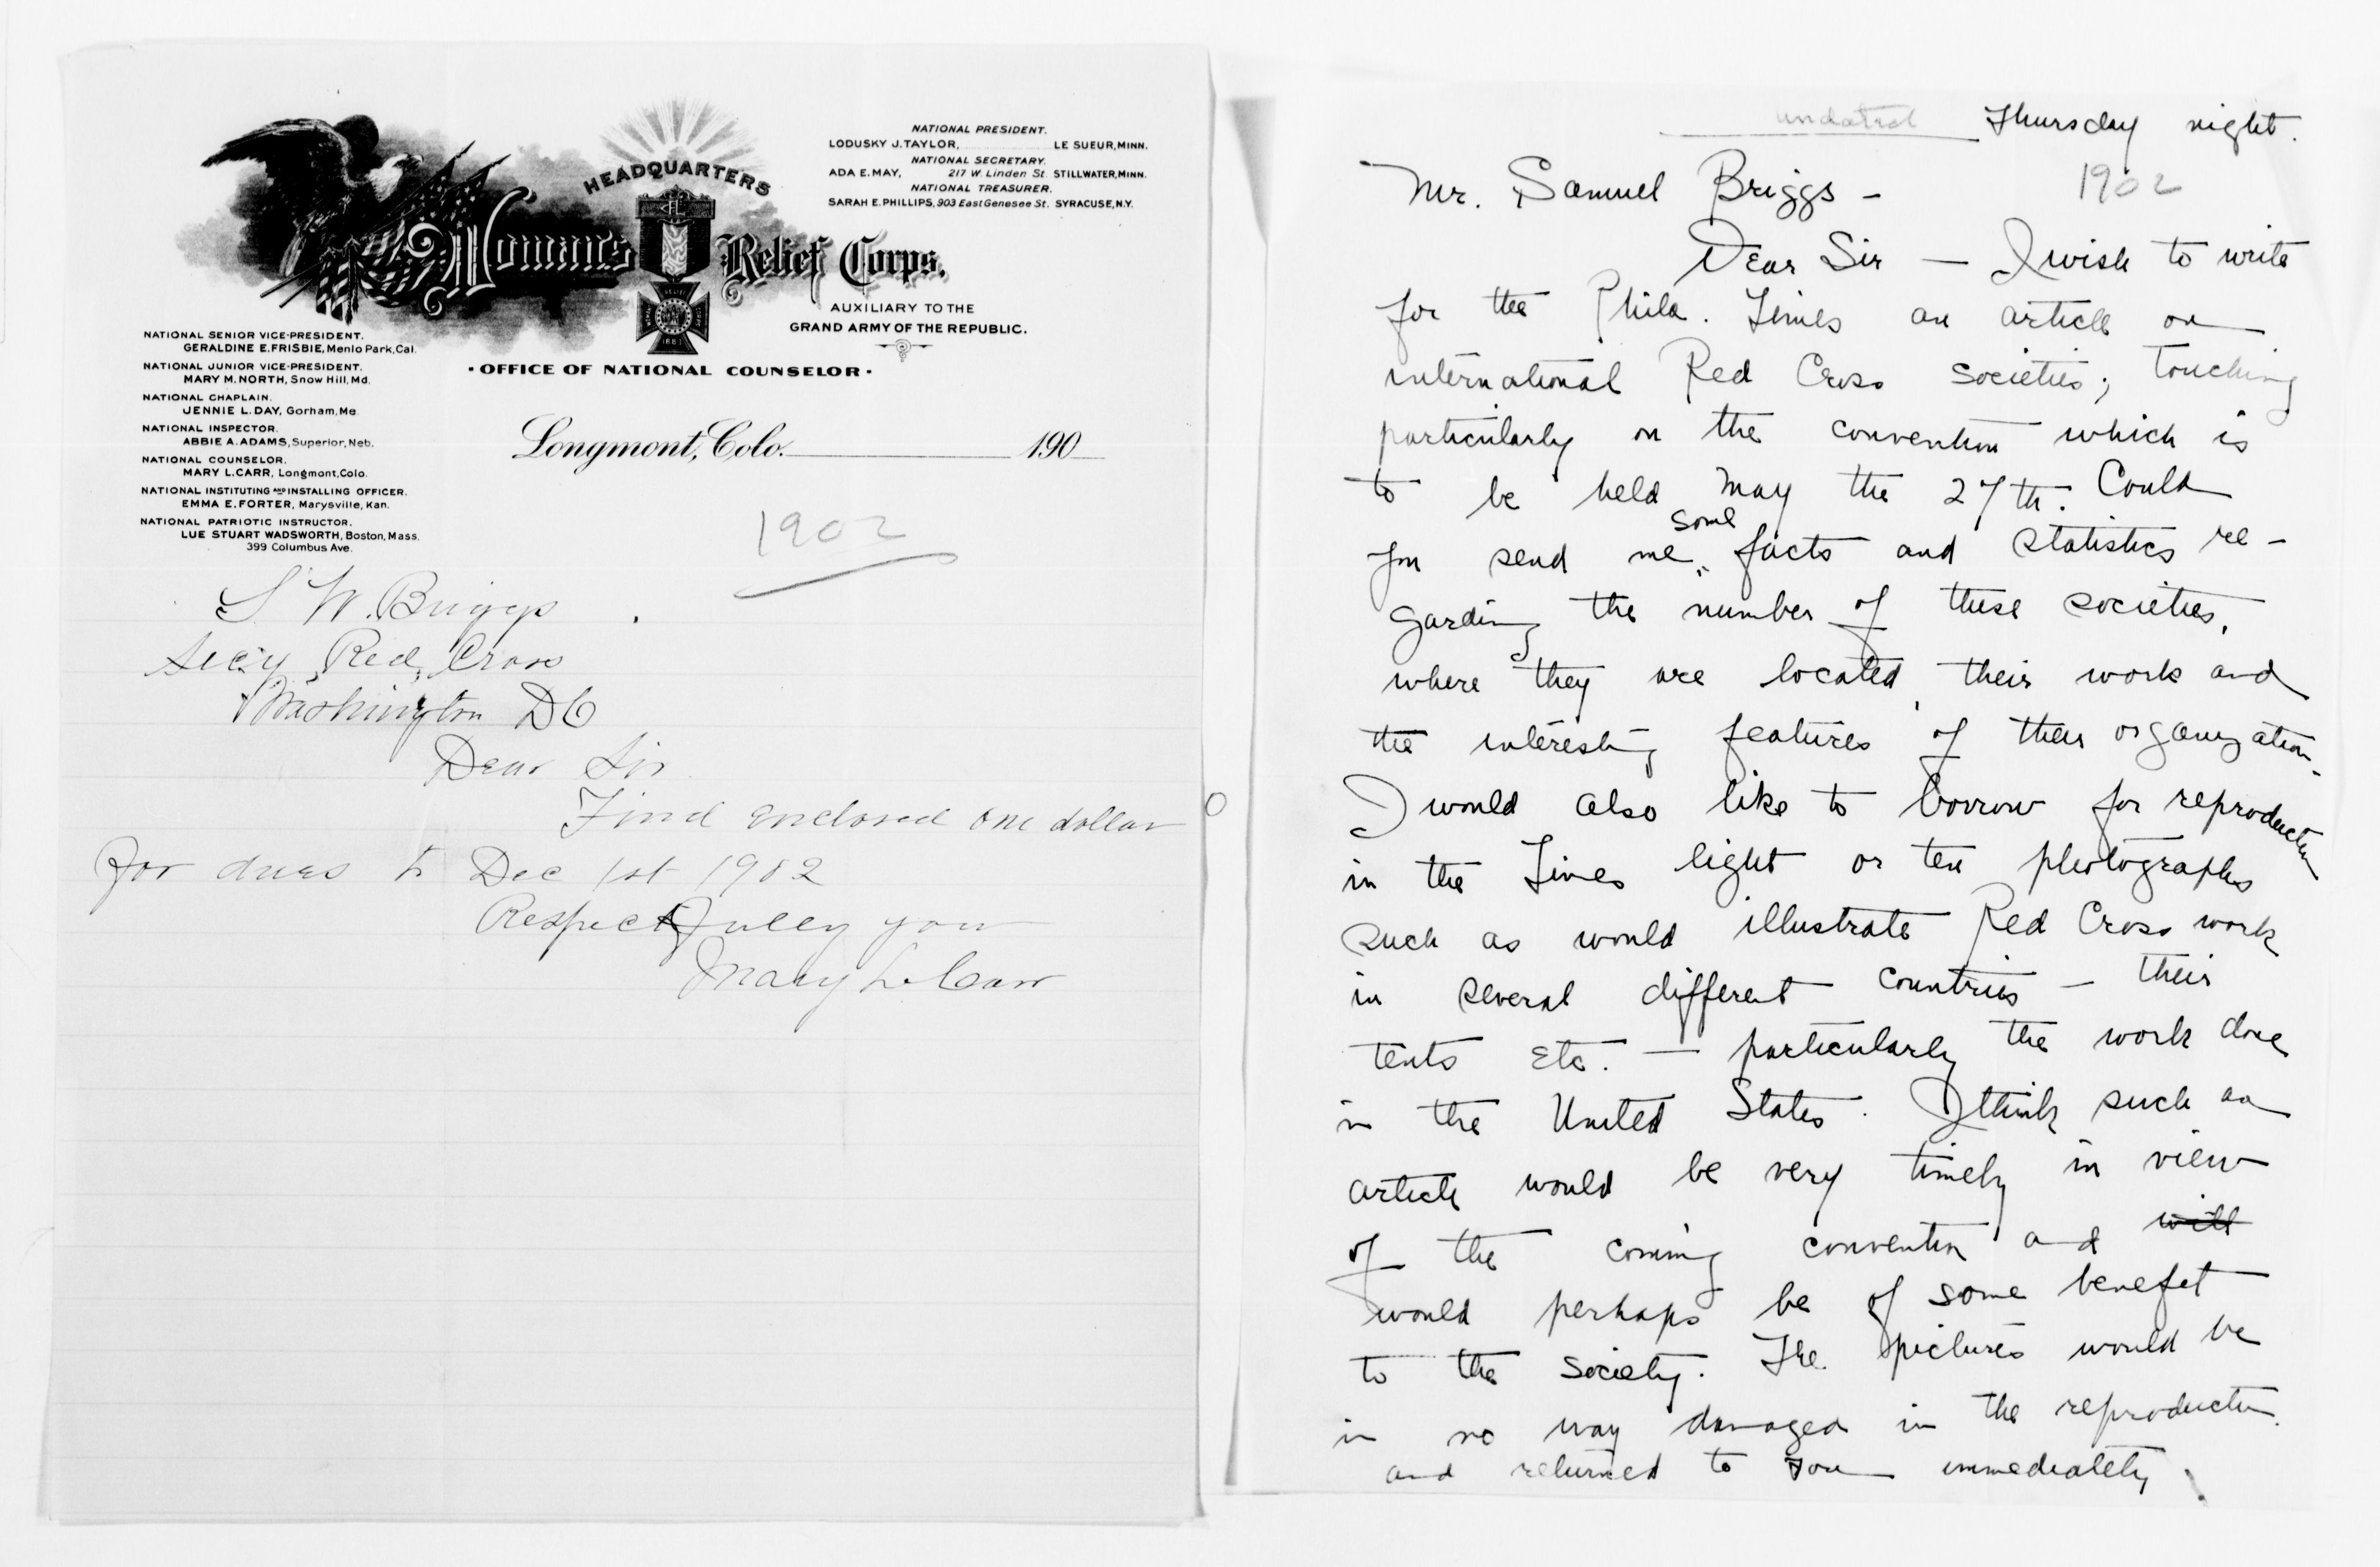 HEADQUARTERS
Woman's Relief Corps.
AUXILIARY TO THE
GRAND ARMY OF THE REPUBLIC.
NATIONAL PRESIDENT.
LODUSKY J. TAYLOR, LE SUEUR, MINN.
NATIONAL SECRETARY.
ADA E. MAY, 217 W. Linden St. STILLWATER, MINN.
NATIONAL TREASURER.
SARAH E. PHILLIPS, 903 East Genesee St. SYRACUSE, N.Y.
NATIONAL SENIOR VICE-PRESIDENT.
GERALDINE E. FRISBIE, Menlo Park, Cal.
NATIONAL JUNIOR VICE-PRESIDENT.
MARY M. NORTH, Snow Hill, Md.
NATIONAL CHAPLAIN.
JENNIE L. DAY, Gorham, Me.
NATIONAL INSPECTOR.
ABBIE A. ADAMS, Superior, Neb.
NATIONAL COUNSELOR.
MARY L. CARR, Longmont, Colo.
NATIONAL INSTITUTING AND INSTALLING OFFICER.
EMMA E. FORTER, Marysville, Kan.
NATIONAL PATRIOTIC INSTRUCTOR.
LUE STUART WADSWORTH, Boston, Mass.
399 Columbus Ave.
· OFFICE OF NATIONAL COUNSELOR ·
Longmont, Colo. 190
1902
S. W. Briggs
Secy Red Cross
Washington DC
Dear Sir
Find enclosed one dollar
for dues to Dec 1st 1902
Respectfully your
Mary L Carr
undated Thursday night.
1902
Mr. Samuel Briggs -
Dear Sir — I wish to write
for the Phila. Times an article on
international Red Cross societies; touching
particularly on the convention which is
to be held May the 27th. Could
you send me some facts and statistics re-
garding the number of these societies,
where they are located, their work and
the interesting features of their organization.
I would also like to borrow for reproduction
in the Times eight or ten photographs
such as would illustrate Red Cross work
in several different countries — their
tents etc. — particularly the work done
in the United States. I think such an
article would be very timely in view
of the coming convention and will
would perhaps be of some benefit
to the society. The pictures would be
in no way damaged in the reproduction
and returned to you immediately.